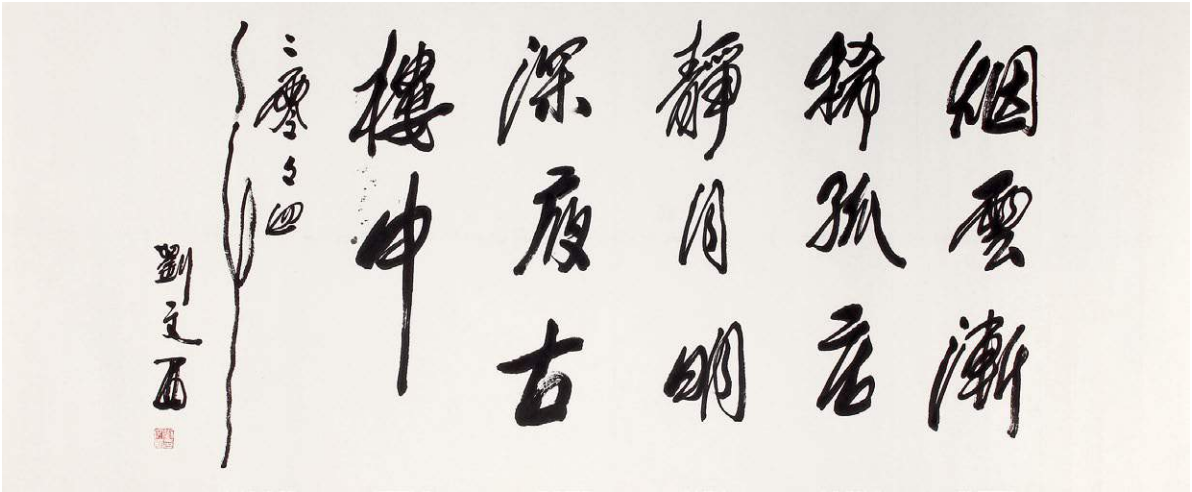 烟雲漸
稀孤店
靜月明
深夜古
樓中
二零々四
年
劉文西